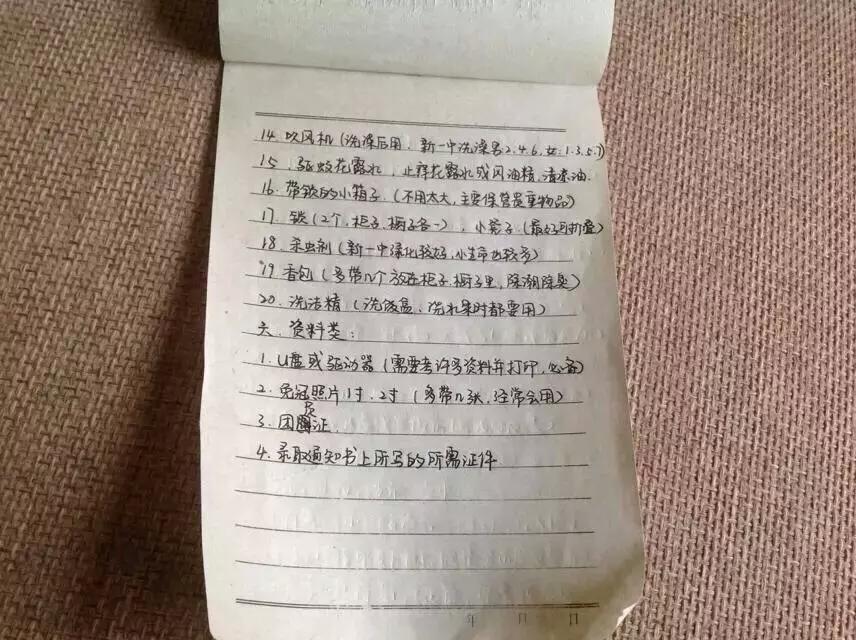 14.吹风机(洗澡后用,新一中洗澡男2.4.6,女:1.3.5.7)
15.驱蚊花露水,止痒花露水或风油精,清凉油.
16.带锁的小箱子.(不用太大,主要保管贵重物品)
17.锁(2个,柜子,橱子各一),小凳子.(最好可折叠)
18.杀虫剂(新一中绿化较好,小生命也较多)
19.香包(多带几个放在柜子.橱子里,除潮除臭)
20.洗洁精(洗饭盒、洗水果时都要用)
六.资料类:
1.U盘或驱动器(需要考许多资料并打印,必备)
2.免冠照片1寸.2寸(多带几张,经常会用)
3.团员证.
4.录取通知书上所写的所需证件
年 月 日